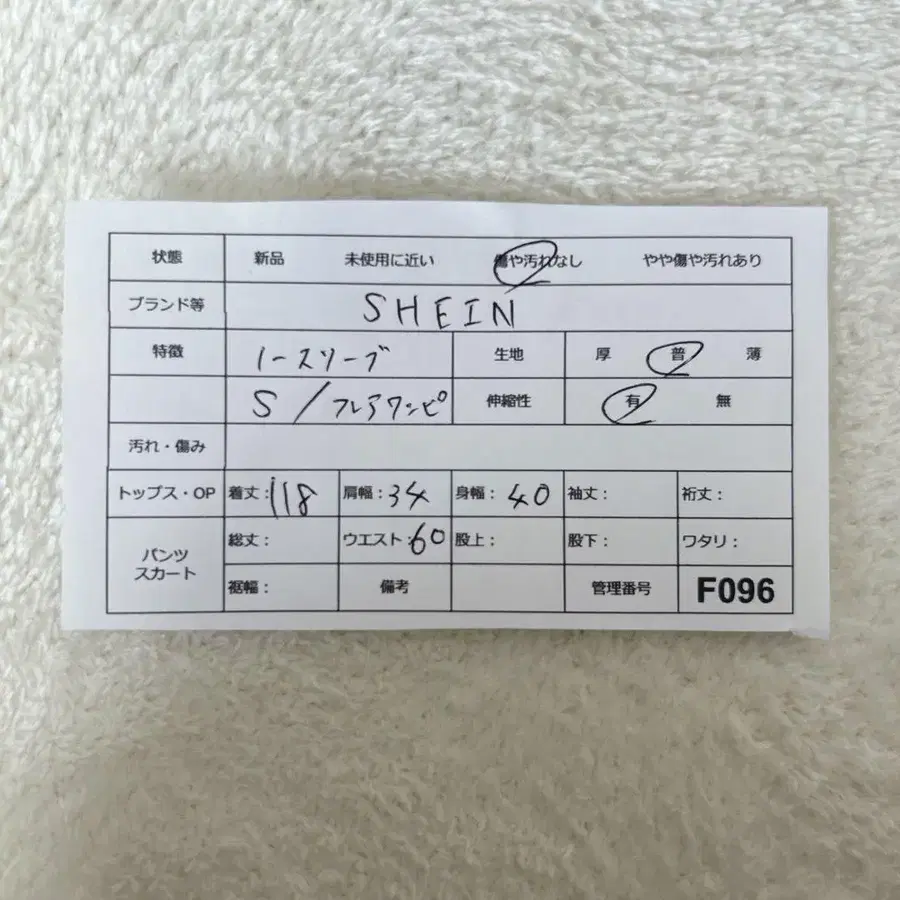 状態 新品 未使用に近い 傷や汚れなし やや傷や汚れあり
ブランド等 SHEIN
特徴 ノースリーブ 生地 厚 普 薄
S / フレアワンピ 伸縮性 有 無
汚れ・傷み
トップス・OP 着丈:118 肩幅:34 身幅:40 袖丈: 裄丈:
パンツ スカート 総丈: ウエスト:60 股上: 股下: ワタリ:
裾幅: 備考 管理番号 F096